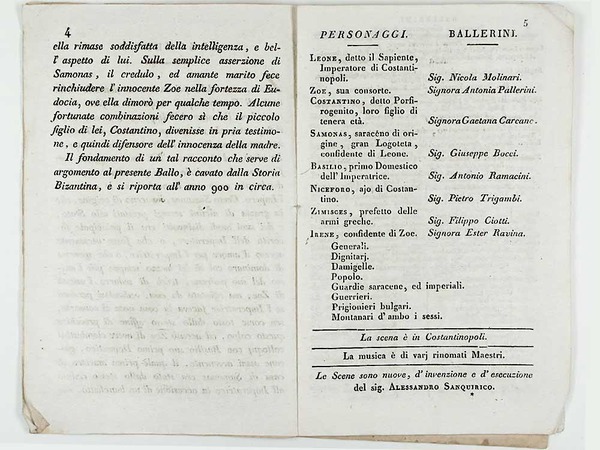 4
ella rimase soddisfatta della intelligenza, e bel-
l' aspetto di lui. Sulla semplice asserzione di
Samonas, il credulo, ed amante marito fece
rinchiudere l' innocente Zoe nella fortezza di Eu-
docia, ove ella dimorò per qualche tempo. Alcune
fortunate combinazioni fecero sì che il piccolo
figlio di lei, Costantino, divenisse in pria testimo-
ne, e quindi difensore dell' innocenza della madre.
Il fondamento di un tal racconto che serve di
argomento al presente Ballo, è cavato dalla Storia
Bizantina, e si riporta all' anno 900 in circa.
5
PERSONAGGI. BALLERINI.
LEONE, detto il Sapiente,
Imperatore di Costanti-
nopoli. Sig. Nicola Molinari.
ZOE, sua consorte. Signora Antonia Pallerini.
COSTANTINO, detto Porfi-
rogenito, loro figlio di
tenera età. Signora Gaetana Carcano.
SAMONAS, saracèno di ori-
gine, gran Logoteta,
confidente di Leone. Sig. Giuseppe Bocci.
BASILIO, primo Domestico
dell' Imperatrice. Sig. Antonio Ramacini.
NICEFORO, ajo di Costan-
tino. Sig. Pietro Trigambi.
ZIMISCES, prefetto delle
armi greche. Sig. Filippo Ciotti.
IRENE, confidente di Zoe. Signora Ester Ravina.
Generali.
Dignitarj.
Damigelle.
Popolo.
Guardie saracene, ed imperiali.
Guerrieri.
Prigionieri bulgari.
Montanari d' ambo i sessi.
La scena è in Costantinopoli.
La musica è di varj rinomati Maestri.
Le Scene sono nuove, d' invenzione e d' esecuzione
del sig. ALESSANDRO SANQUIRICO.
*